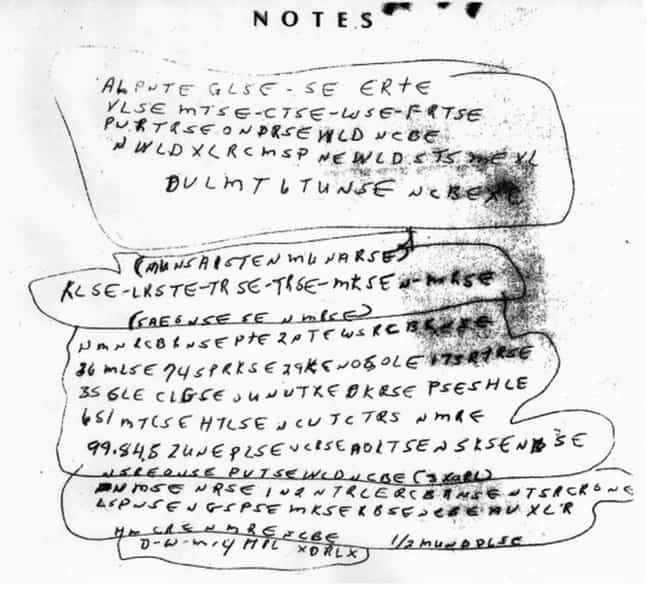 NOTES
ALPNTE GLSE - SE ERTE
VLSE MTSE-CTSE-WSE-FRTSE
PURTRSE ONDRSE WLD NCBE
NWLD XLRCMSP NEWLD STS ME XL
DULMT 6 TUNSE NCBE XC
(MUNSAISTEN MUNARSE)
KLSE-LRSTE-TRSE-TRSE-MKSEN-MRSE
(SAEGNSE SE N MRSE)
NMNRCBRNSE PTE 2NTE WSRC
36 MLSE 74 SPRKSE 29KENOSOLE 173RTRSE
35 GLE CLGSE UNUTXE DKRSE PSESHLE
651 MTCSE HTLSE NCUTCTRS NMRE
99.84.8 ZUNE PLSE NCRSE AOLTSE NSKSE N SE
NSREONSE PUTSE WLD NCBE (3XORL)
NMSE NRSE IN2NTRLERCBRNSE NTSRCRONE
LSPNSE NGSPSE MKSERBSE NCBE AUXLR
HM CRE NMRE NCBE 1/2 MUNDPLSE
D-W-M-4 MPL XDRLX